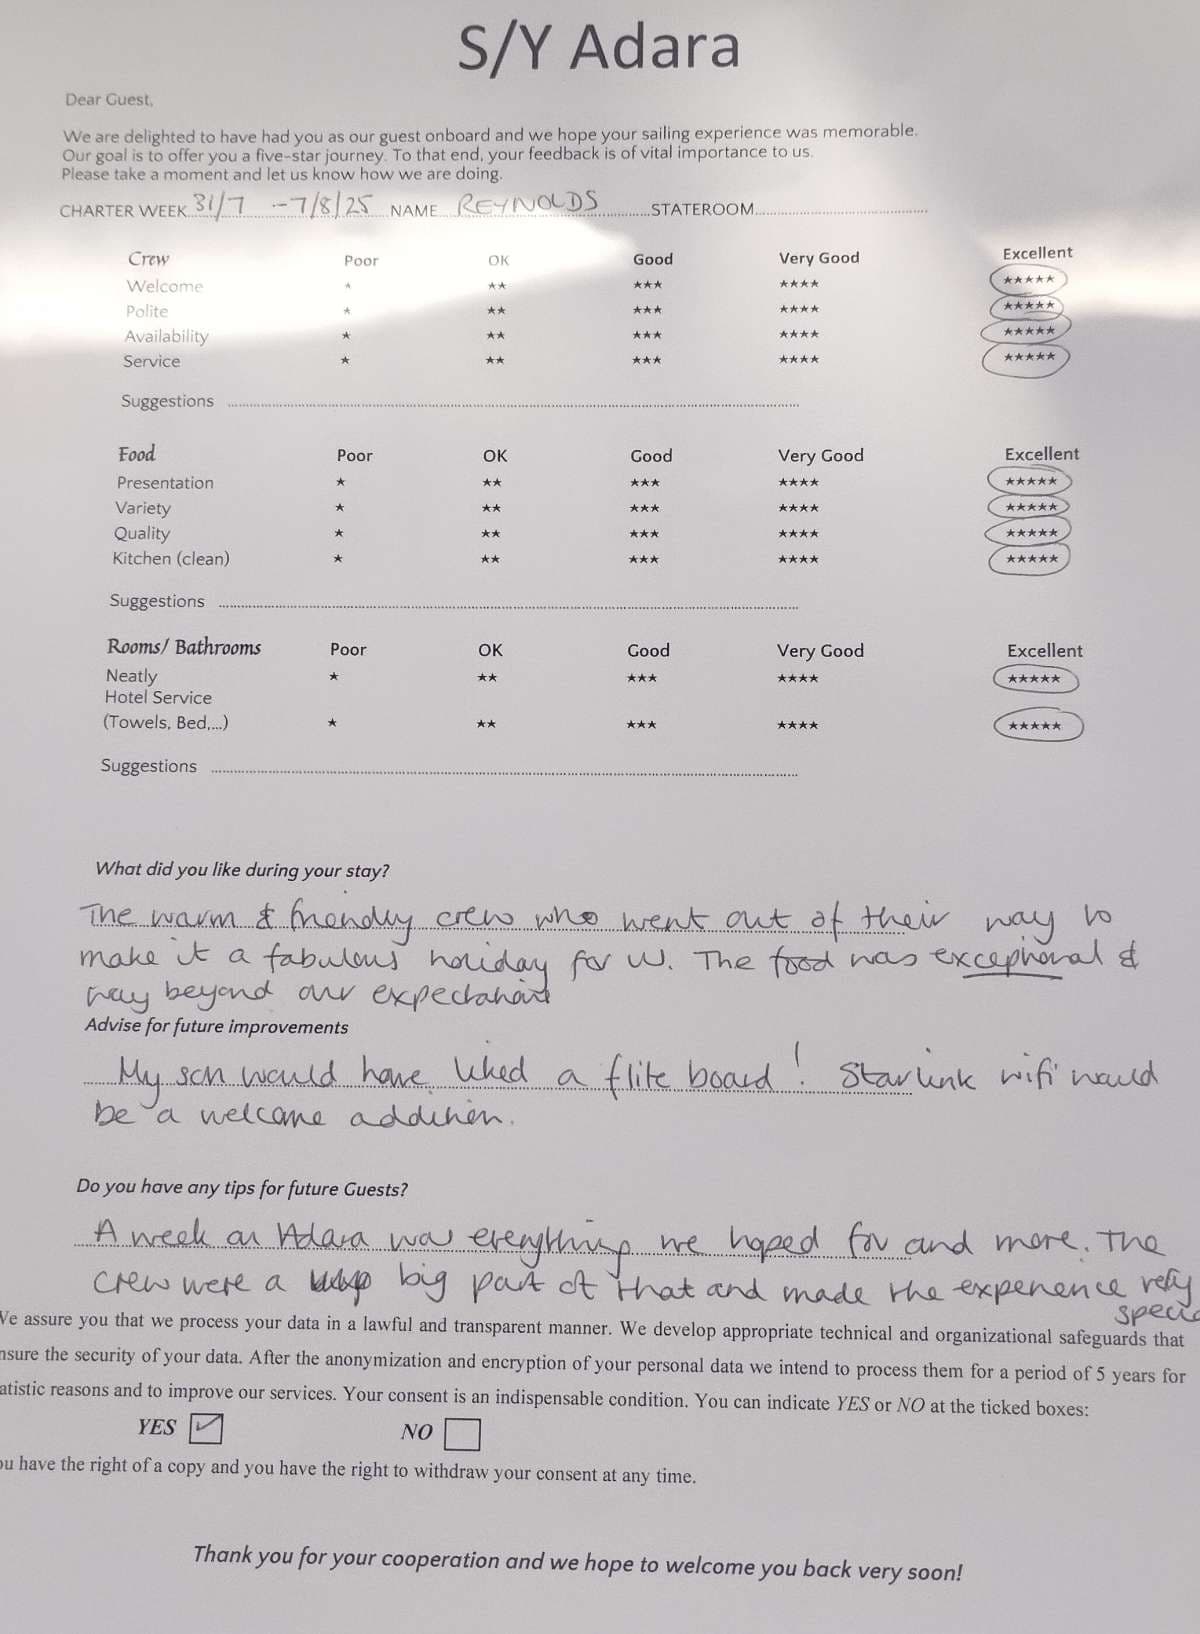 S/Y Adara
Dear Guest,
We are delighted to have had you as our guest onboard and we hope your sailing experience was memorable.
Our goal is to offer you a five-star journey. To that end, your feedback is of vital importance to us.
Please take a moment and let us know how we are doing.
CHARTER WEEK 31/7 - 7/8/25 NAME REYNOLDS STATEROOM
Crew Poor OK Good Very Good Excellent
Welcome ★ ★★ ★★★ ★★★★ ★★★★★
Polite ★ ★★ ★★★ ★★★★ ★★★★★
Availability ★ ★★ ★★★ ★★★★ ★★★★★
Service ★ ★★ ★★★ ★★★★ ★★★★★
Suggestions
Food Poor OK Good Very Good Excellent
Presentation ★ ★★ ★★★ ★★★★ ★★★★★
Variety ★ ★★ ★★★ ★★★★ ★★★★★
Quality ★ ★★ ★★★ ★★★★ ★★★★★
Kitchen (clean) ★ ★★ ★★★ ★★★★ ★★★★★
Suggestions
Rooms/ Bathrooms Poor OK Good Very Good Excellent
Neatly ★ ★★ ★★★ ★★★★ ★★★★★
Hotel Service
(Towels, Bed,...) ★ ★★ ★★★ ★★★★ ★★★★★
Suggestions
What did you like during your stay?
The warm & friendly crew who went out of their way to
make it a fabulous holiday for us. The food was exceptional &
way beyond our expectations
Advise for future improvements
My son would have liked a flite board! Starlink wifi would
be a welcome addition.
Do you have any tips for future Guests?
A week on Adara was everything we hoped for and more. The
crew were a big part of that and made the experience very
special
We assure you that we process your data in a lawful and transparent manner. We develop appropriate technical and organizational safeguards that
nsure the security of your data. After the anonymization and encryption of your personal data we intend to process them for a period of 5 years for
atistic reasons and to improve our services. Your consent is an indispensable condition. You can indicate YES or NO at the ticked boxes:
YES ✓ NO
ou have the right of a copy and you have the right to withdraw your consent at any time.
Thank you for your cooperation and we hope to welcome you back very soon!